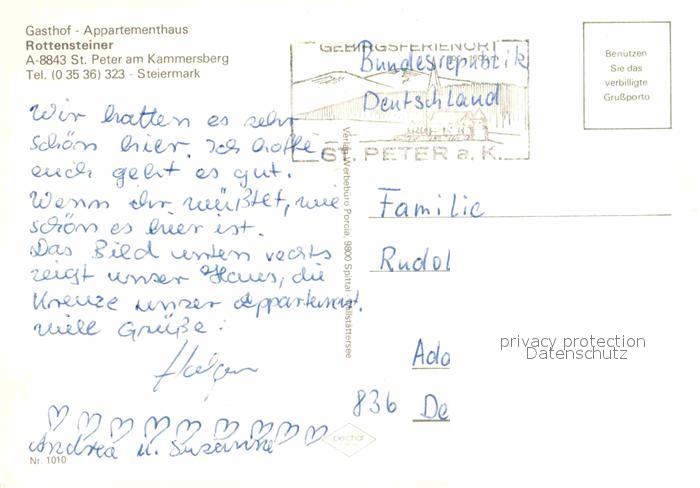 Gasthof - Appartementhaus
Rottensteiner
A-8843 St. Peter am Kammersberg
Tel. (0 35 36) 323 - Steiermark
GEBIRGSFERIENORT
ST. PETER a. K.
Benützen
Sie das
verbilligte
Grußporto
Bundesrepublik
Deutschland
Wir hatten es sehr
schön hier. Ich hoffe
euch geht es gut.
Wenn ihr wüßtet, wie
schön es hier ist.
Das Bild unten rechts
zeigt unser Haus, die
Kreuze unser Appartement.
viele Grüße:
Holger
Andrea u. Susanne
Nr. 1010
Verlag Werbebüro Porcia, 9800 Spittal/Millstättersee
perchar
Familie
Rudol
Ado
836 De
privacy protection
Datenschutz